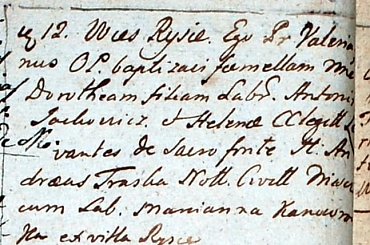 12. Wies Rysie. Ego Pr Valeria
nus OP. baptizavi femellam
Dorotheam filiam Labr. Antoni
Sachowicz. et Helenæ CClegitt
vantes de Sacro fonte H. An
dræas Traska Nott. Civitt
cum Lab. Marcianna Kanowni
ka ex villa Rysie